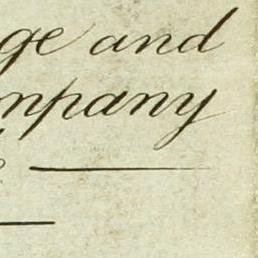 ge and
mpany